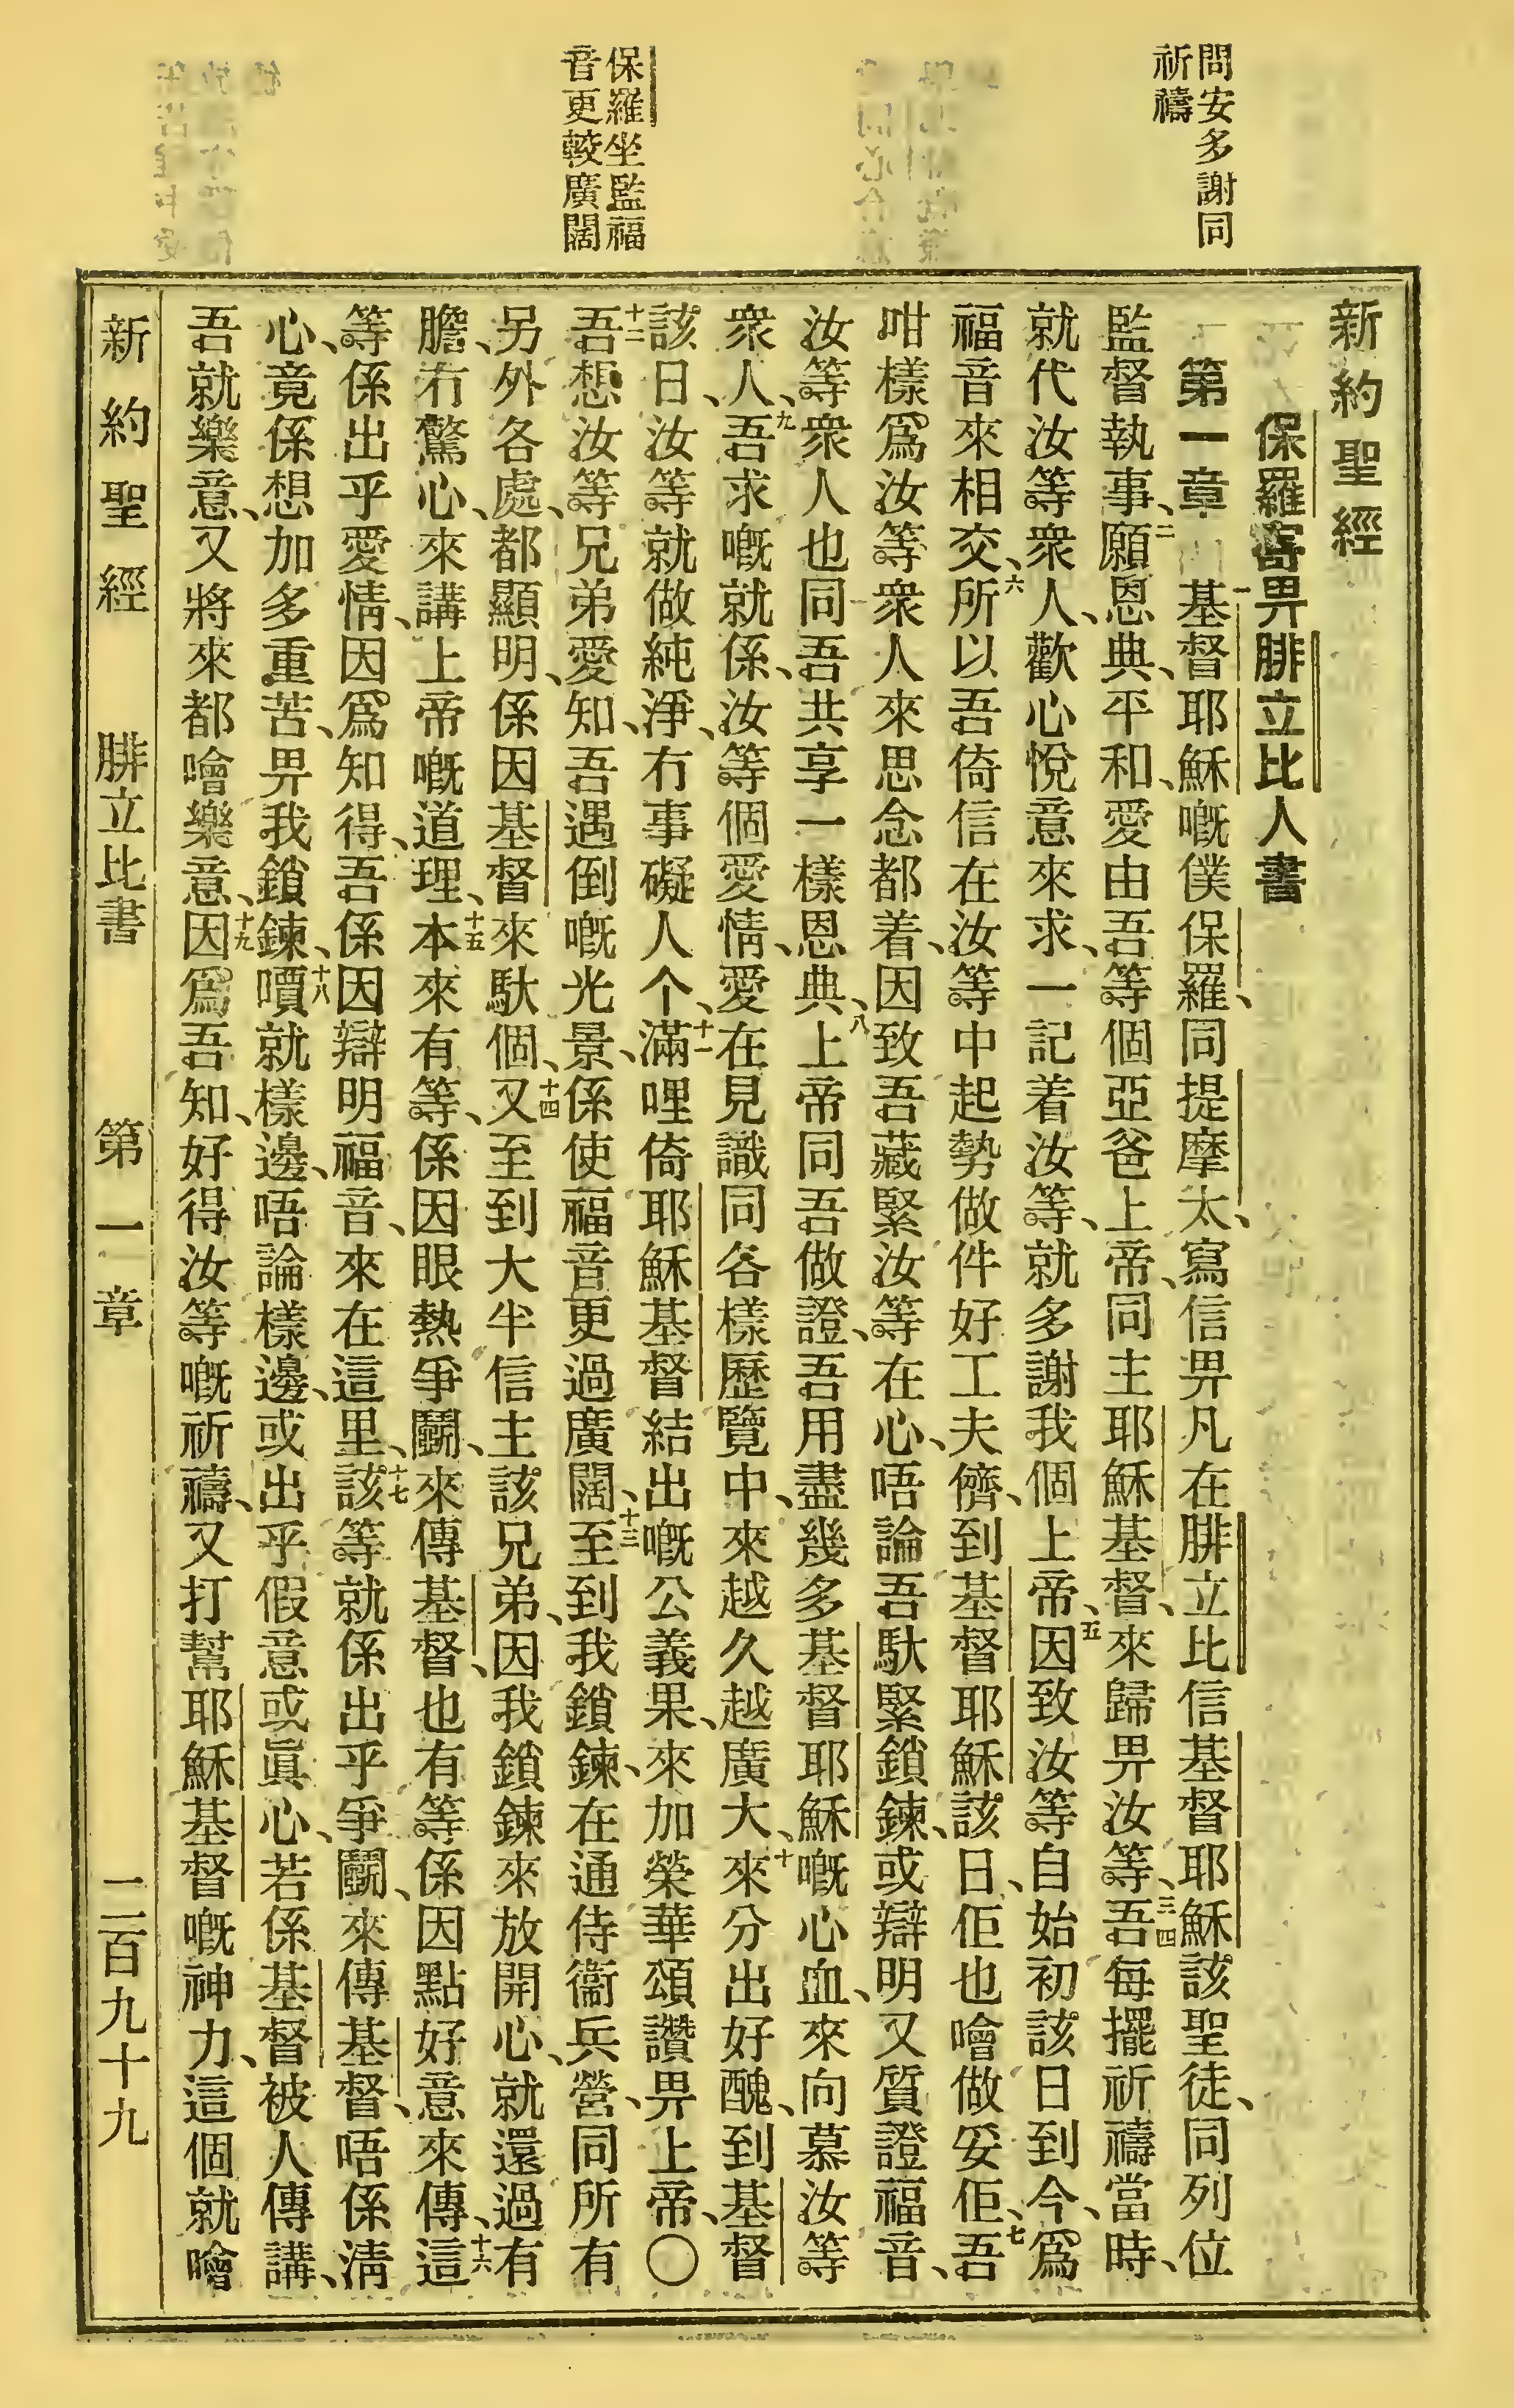 問安多謝同
祈禱
保羅坐監福
音更較廣闊
新約聖經
保羅寄畀腓立比人書
第一章 一基督耶穌嘅僕保羅、同提摩太、寫信畀凡在腓立比信基督耶穌該聖徒、同列位
監督執事、二願恩典、平和、愛由吾等個亞爸上帝、同主耶穌基督、來歸畀汝等、三吾四每擺祈禱當時、
就代汝等衆人、歡心悅意來求、一記着汝等、就多謝我個上帝、五因致汝等自始初該日到今、爲
福音來相交、六所以吾倚信在汝等中起勢做件好工夫儕、到基督耶穌該日、佢也噲做妥佢、七吾
咁樣爲汝等衆人來思念都着、因致吾藏緊汝等在心、唔論吾馱緊鎖鍊、或辯明又質證福音、
汝等衆人也同吾共享一樣恩典、八上帝同吾做證、吾用盡幾多基督耶穌嘅心血、來向慕汝等
衆人、九吾求嘅就係、汝等個愛情、愛在見識同各樣歷覽中、來越久越廣大、十來分出好醜、到基督
該日、汝等就做純淨、冇事礙人个、十一滿哩倚耶穌基督結出嘅公義果、來加榮華頌讚畀上帝、〇
十二吾想汝等兄弟愛知、吾遇倒嘅光景、係使福音更過廣闊、十三至到我鎖鍊、在通侍衞兵營、同所有
另外各處、都顯明、係因基督來馱個、十四又至到大半信主該兄弟、因我鎖鍊來放開心、就還過有
膽、冇驚心、來講上帝嘅道理、十五本來有等、係因眼熱爭鬭、來傳基督、也有等係因點好意來傳、十六這
等係出乎愛情、因爲知得、吾係因辯明福音、來在這里、十七該等就係出乎爭鬭、來傳基督、唔係淸
心、竟係想加多重苦、畀我鎖鍊、十八嘳就樣邊、唔論樣邊、或出乎假意或眞心、若係基督被人傳講、
吾就樂意、又將來都噲樂意、十九因爲吾知、好得汝等嘅祈禱、又打幫耶穌基督嘅神力、這個就噲
新約聖經 腓立比書 第一章 二百九十九